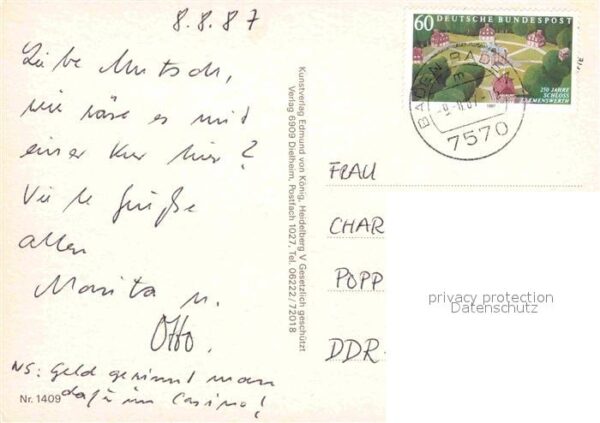 8.8.87
Liebe Mutsch,
wie wäre es mit
einer Kur hier?
Viele Grüße
allen
Marita u.
Otto.
NS: Geld gewinnt man
dafür im Casino!
Nr. 1409
Kunstverlag Edmund von König, Heidelberg V Gesetzlich geschützt
Verlag 6909 Dielheim, Postfach 1027, Tel. 06222/72018
60 DEUTSCHE BUNDESPOST
250 JAHRE
SCHLOSS
CLEMENSWERTH
1987
BADEN-BADEN
7570
FRAU
CHAR
POPP
DDR-
privacy protection
Datenschutz